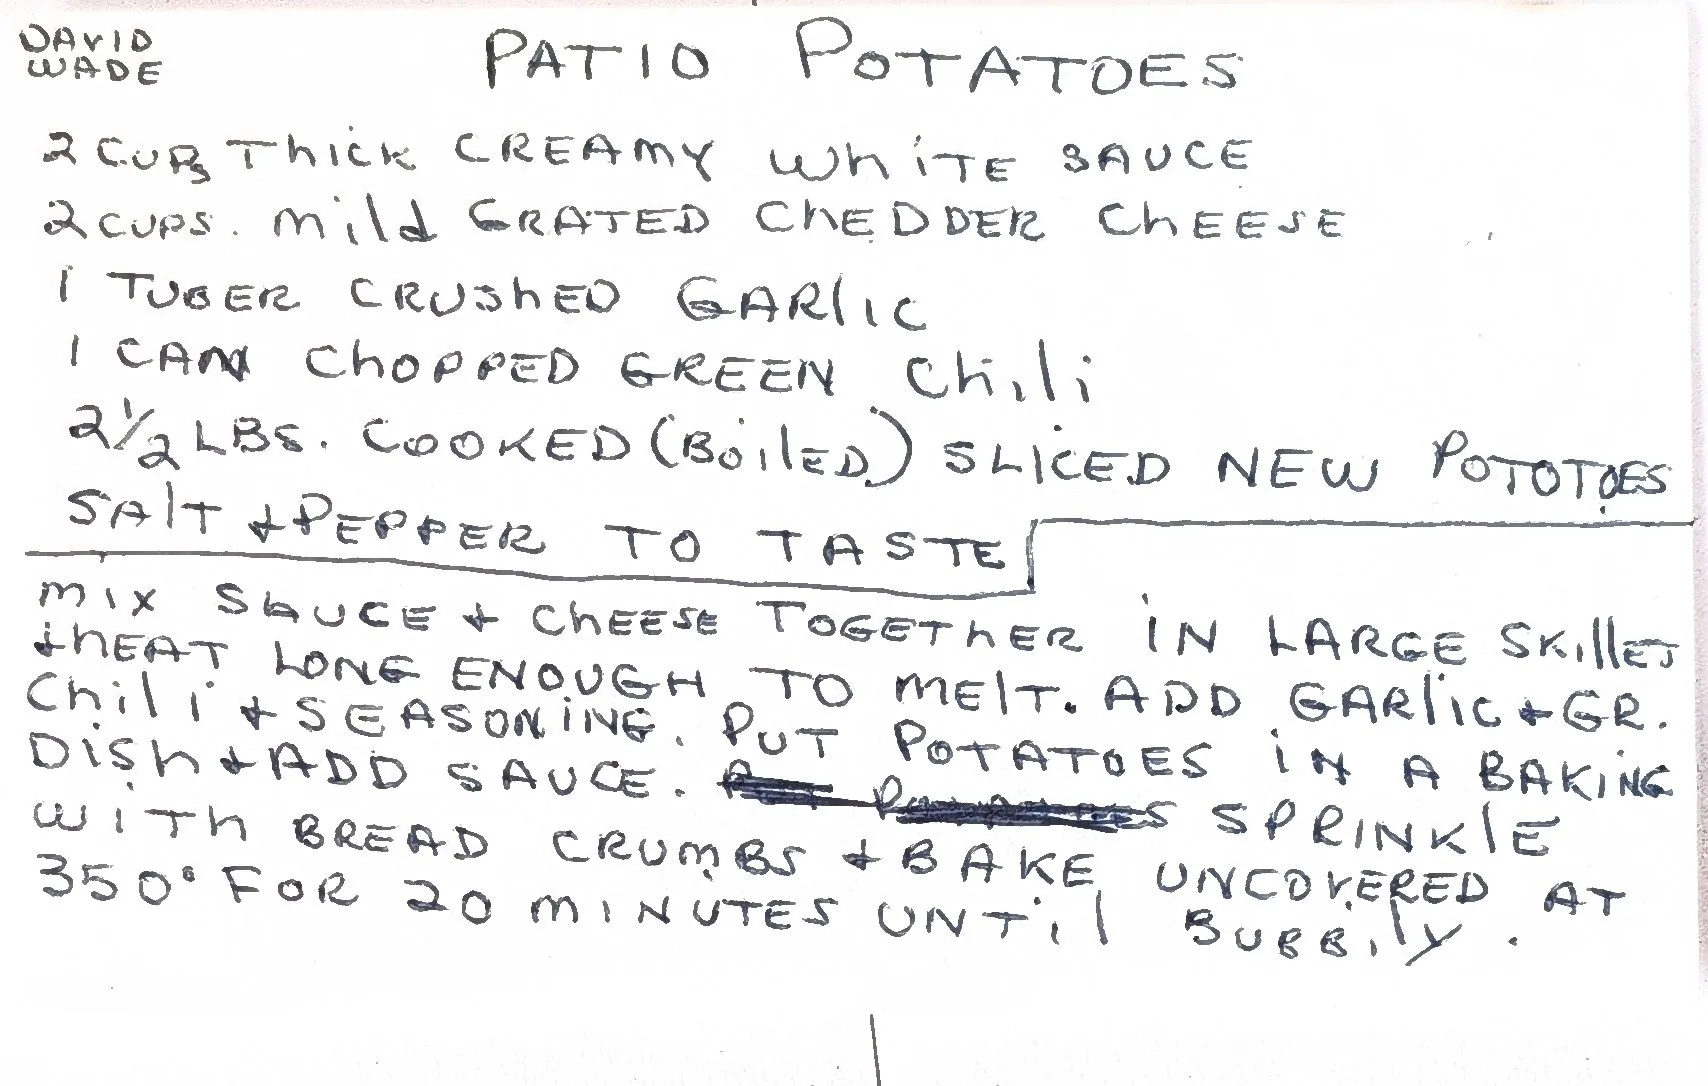 DAVID
WADE
PATIO POTATOES
2 CUPS THICK CREAMY WHITE SAUCE
2 CUPS. MILD GRATED CHEDDER CHEESE
1 TUBER CRUSHED GARLIC
1 CAN CHOPPED GREEN CHILI
2 1/2 LBS. COOKED (BOILED) SLICED NEW POTOTOES
SALT & PEPPER TO TASTE
MIX SAUCE & CHEESE TOGETHER IN LARGE SKILLET
& HEAT LONG ENOUGH TO MELT. ADD GARLIC & GR.
CHILI & SEASONING. PUT POTATOES IN A BAKING
DISH & ADD SAUCE. SPRINKLE
WITH BREAD CRUMBS & BAKE UNCOVERED AT
350° FOR 20 MINUTES UNTIL BUBBILY.